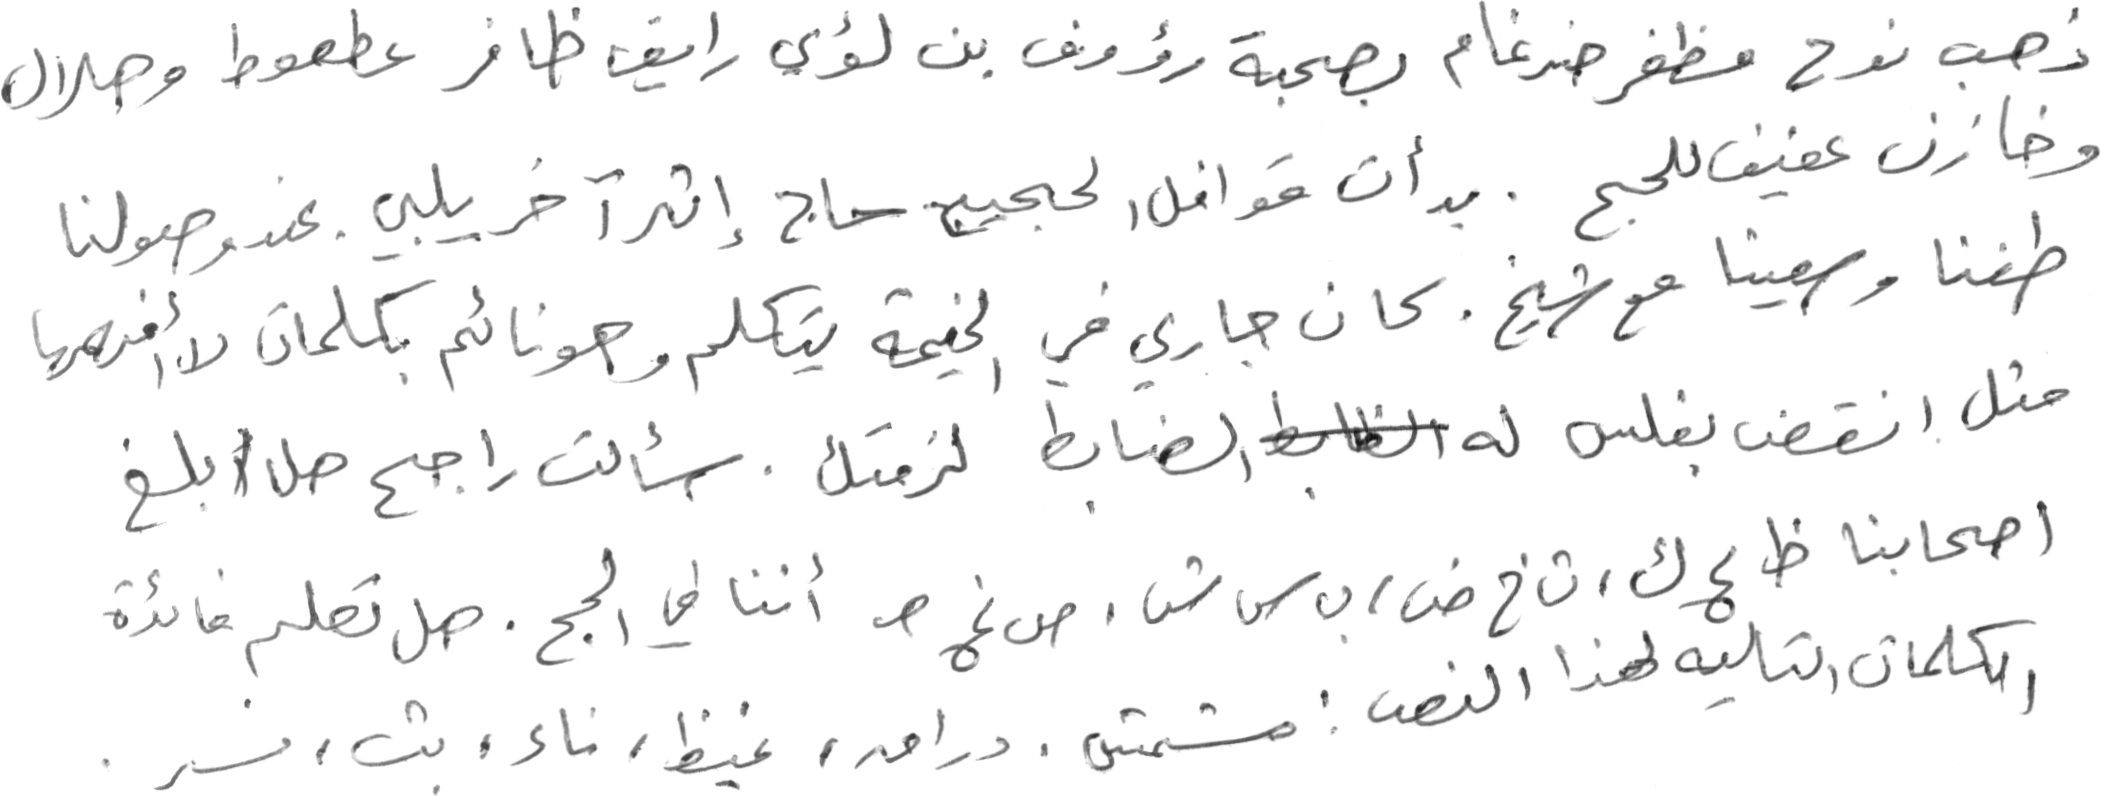 ذهب نوح مظفر ضرغام بصحبة رؤوف بن لؤي رايق ظافر عطعوط وهلال
وخازن عفيف للحج . بدأت قوافل الحجيج حاج إثر آخر يلبي . عند وصولنا
طفنا وسعينا مع شيخ . كان جاري في الخيمة يتكلم وهو نائم بكلمات لا أفهمها
مثل انقض بفلس له الظابط الضابط لزمتك . سألت راجح هلا أبلغ
اصحابنا ظ ك ، ث خ ض ، ب س ش ، ص غ هـ أننا في الحج . هل تعلم فائدة
الكلمات التاليه لهذا النص : مشمش ، دراهم ، غيظ ، ناء ، بث ، نسر .